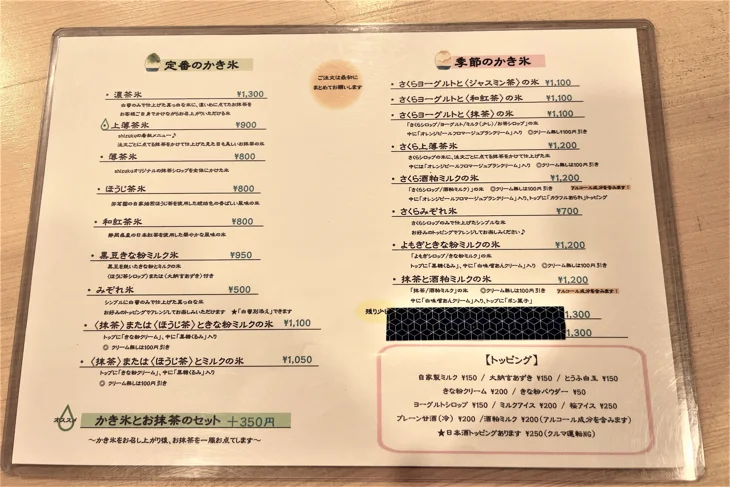 定番のかき氷
・濃茶氷 ¥1,300
・上薄茶氷 ¥900
shizukuの看板メニュー♪
注文ごとに点てる抹茶をかけて仕上げた見た目も美しいお抹茶の氷
・薄茶氷 ¥800
shizukuオリジナルの抹茶シロップを全体にかけた氷
・ほうじ茶氷 ¥800
・和紅茶氷 ¥800
静岡県産の日本紅茶を使用した華やかな風味の氷
・黒豆きな粉ミルクの氷 ¥950
黒豆を挽いたきな粉とミルクの氷
(ほうじ茶シロップ)または(大納言あずき)付き
・みぞれ氷 ¥500
シンプルに白蜜のみで仕上げた真っ白な氷
お好みのトッピングでアレンジしてお楽しみいただけます ★「白蜜別添え」できます
・〈抹茶〉または〈ほうじ茶〉ときな粉ミルクの氷 ¥1,100
トップに「きな粉クリーム」、中に「黒糖くるみ」入り
◎ クリーム無しは100円引き
・〈抹茶〉または〈ほうじ茶〉とミルクの氷 ¥1,050
トップに「きな粉クリーム」、中に「黒糖くるみ」入り
◎ クリーム無しは100円引き
オススメ かき氷とお抹茶のセット +350円
〜かき氷をお召し上がり後、お抹茶を一服お点てします〜
ご注文は最初に
まとめてお願いします
季節のかき氷
・さくらヨーグルトと〈ジャスミン茶〉の氷 ¥1,100
・さくらヨーグルトと〈和紅茶〉の氷 ¥1,100
・さくらヨーグルトと〈抹茶〉の氷 ¥1,100
「さくらシロップ/ヨーグルト/ミルク(少し)/お茶シロップ」の氷
中に「オレンジピールフロマージュブランクリーム」入り ◎クリーム無しは100円引き
・さくら上薄茶氷 ¥1,200
さくらシロップの氷に、注文ごとに点てる抹茶をかけて仕上げた氷
中には「オレンジピールフロマージュブランクリーム」入り ◎クリーム無しは100円引き
・さくら酒粕ミルクの氷 ¥1,200
「さくらシロップ/酒粕ミルク」の氷 ◎クリーム無しは100円引き アルコール成分を含みます!
中に「オレンジピールフロマージュブランクリーム」入り、トップに「カラフルあられ」トッピング
・さくらみぞれ氷 ¥700
さくらシロップのみで仕上げたシンプルな氷
お好みのトッピングでアレンジしてお楽しみください♪
・よもぎときな粉ミルクの氷 ¥1,200
「よもぎシロップ/きな粉ミルク」の氷
トップに「黒糖くるみ」、中に「白味噌あんクリーム」入り ◎クリーム無しは100円引き
・抹茶と酒粕ミルクの氷 ¥1,200
「抹茶/酒粕ミルク」の氷 ◎クリーム無しは100円引き アルコール成分を含みます!
中に「白味噌あんクリーム」入り、トップに「ポン菓子」
残り少
1,300
1,300
【トッピング】
自家製ミルク ¥150 / 大納言あずき ¥150 / とうふ白玉 ¥150
きな粉クリーム ¥200 / きな粉パウダー ¥50
ヨーグルトシロップ ¥150 / ミルクアイス ¥200 / 桜アイス ¥250
プレーン甘酒(冷) ¥200 / 酒粕ミルク ¥200(アルコール成分を含みます)
★日本酒トッピングあります ¥250(クルマ運転NG)